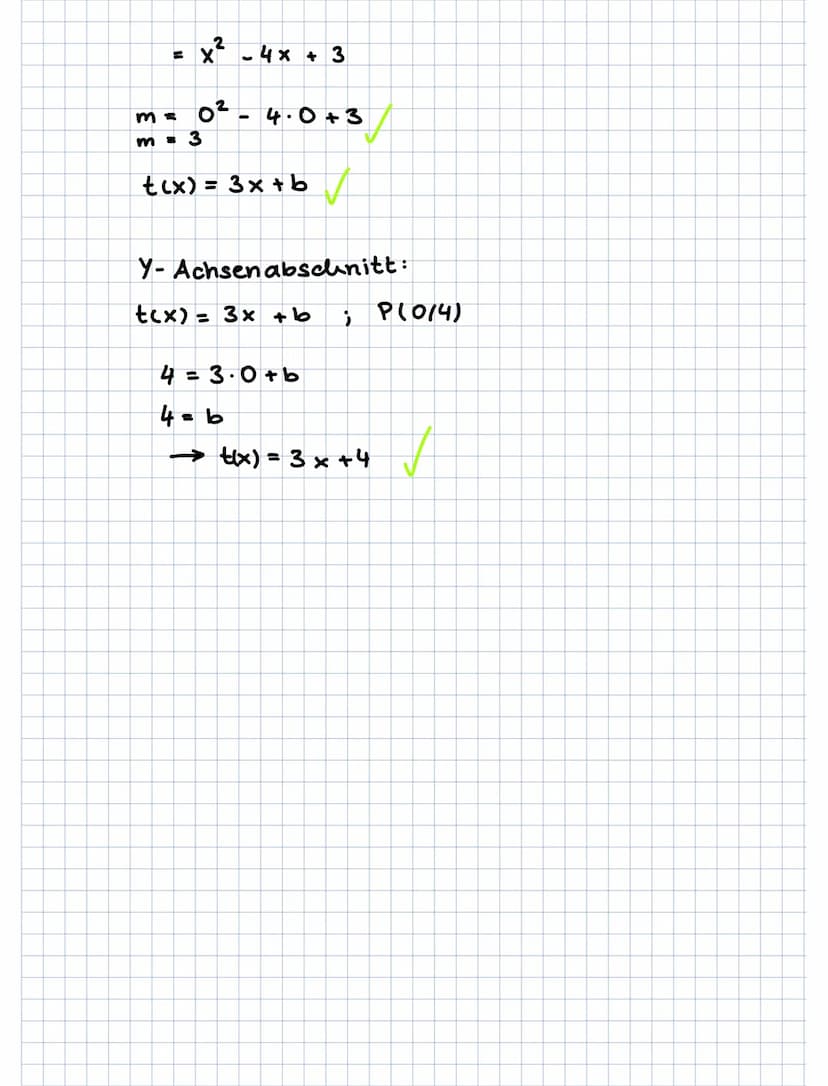 = x² - 4x + 3
m = 0² - 4·0+3
m = 3
t(x) = 3x+b
Y-Achsenabschnitt:
t(x) = 3x +b ; P(0/4)
4 = 3·0+b
4 = b
→ t(x) = 3x+4